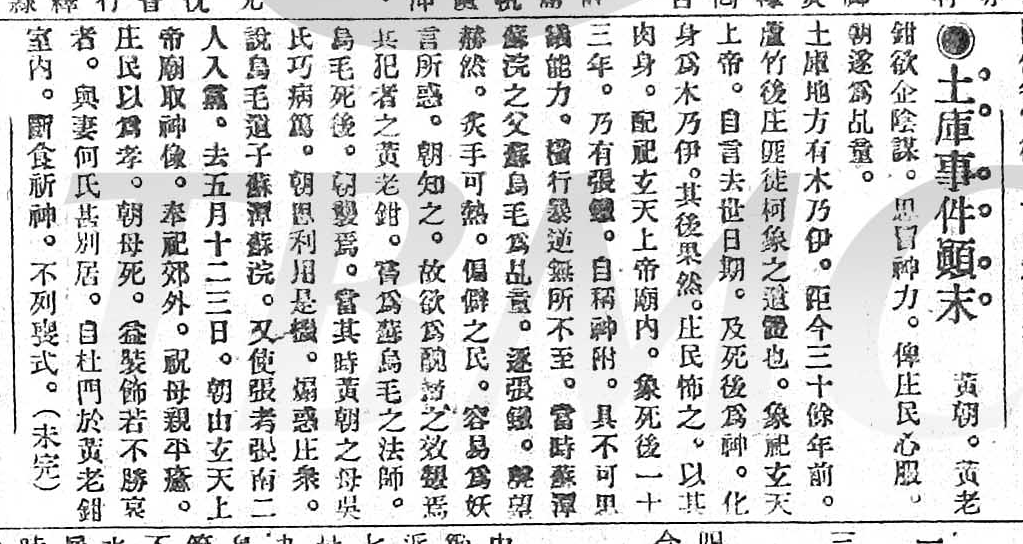 土庫事件顛末　黃朝。黃老
鉗欲企陰謀。思冒神力。俾庄民心服。
朝遂爲乩童。
土庫地方有木乃伊。距今三十餘年前。
蘆竹後庄匪徒柯象之遺體也。象祀玄天
上帝。自言去世日期。及死後爲神。化
身爲木乃伊。其後果然。庄民怖之。以其
肉身。配祀玄天上帝廟內。象死後一十
三年。乃有張鐵。自稱神附。具不可思
議能力。橫行暴逆無所不至。當時蘇潭
蘇浣之父蘇烏毛爲乩童。逐張鐵。聲望
赫然。炙手可熱。偏僻之民。容易爲妖
言所惑。朝知之。故欲爲之效顰焉
共犯者之黃老鉗。嘗爲蘇烏毛之法師。
烏毛死後。朝襲焉。當其時黃朝之母吳
氏巧病篤。朝思利用是機。煽惑庄衆。
說烏毛遺子蘇潭蘇浣。又使張考張南二
人入黨。去五月十二三日。朝由玄天上
帝廟取神像。奉祀郊外。祝母親平癒。
庄民以爲孝。朝母死。益裝飾若不勝哀
者。與妻何氏甚別居。自杜門於黃老鉗
室內。斷食祈神。不列喪式。（未完）